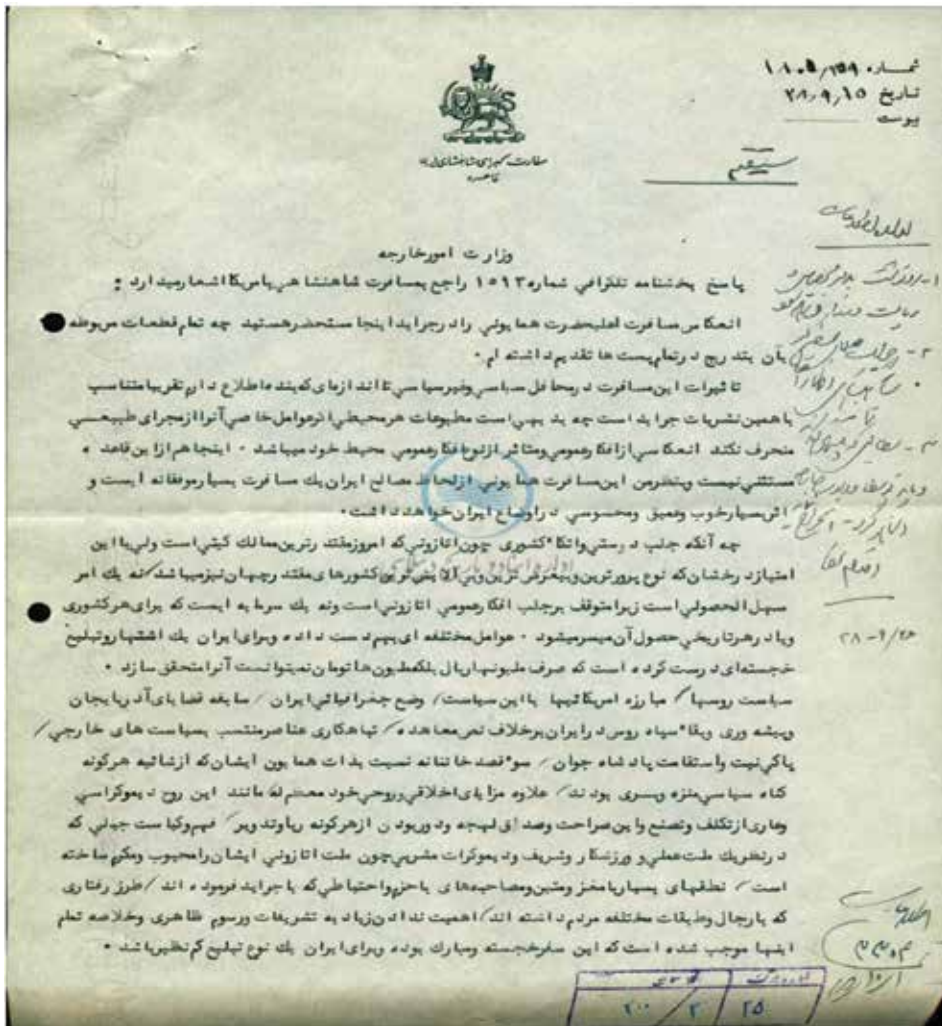 شماره ۱۸۰۵/۲۵۹
تاریخ ۲۸٫۹٫۱۵
پیوست
سفارت کبرای شاهنشاهی ایران
قاهره
مستقیم
وزارت امورخارجه
پاسخ بخشنامه تلگرافی شماره ۱۵۹۳ راجع بمسافرت شاهنشاهی بامریکا اشعارمیدارد :
انعکاس مسافرت اعلیحضرت همایونی را در جراید اینجا مستحضر هستید چه تمام قطعات مربوطه
بآن بتدریج درتمام پست ها تقدیم داشته ام .
تاثیرات این مسافرت درمحافل سیاسی وغیرسیاسی تا اندازه‌ای که بنده اطلاع دارم تقریبا متناسب
باهمین نشریات جراید است چه بدیهی است مطبوعات هرمحیطی اگر عوامل خاصی آنرا ازمجرای طبیعی
منحرف نکند انعکاسی از افکارعمومی ومتاثر ازنوع افکارعمومی محیط خود میباشد . اینجا هم ازاین قاعده
مستثنی نیست وبنظرمن این مسافرت همایونی ازلحاظ مصالح ایران یك مسافرت بسیارموفقانه ایست و
اثر بسیارخوب وعمیق ومحسوسی در اوضاع ایران خواهد داشت .
چه آنکه جلب دوستی واتکاء کشوری چون اتازونی که امروز مقتدرترین ممالك گیتی است ولی با این
امتیاز درخشان که نوع پرورترین وبیغرض ترین وبی آلایش ترین کشورهای مقتدر جهان نیزمیباشد نه یك امر
سهل الحصولی است زیرا متوقف برجلب افکارعمومی اتازونی است ونه یك سرمایه ایست که برای هرکشوری
ویا درهرتاریخی حصول آن میسرمیشود . عوامل مختلفه ای بهم دست داده وبرای ایران یك اشتهار وتبلیغ
خجسته‌ای درست کرده است که صرف ملیونها ریال بلکه ملیون ها تومان نمیتوانست آنرا متحقق سازد .
سیاست روسها / مبارزه امریکائیها با این سیاست / وضع جغرافیائی ایران / سابقه قضایای آذربایجان
وپیشه وری وبقاء سپاه روس درایران برخلاف نص معاهده / تباهکاری عناصر منتسب بسیاست های خارجی /
پاکی نیت واستقامت پادشاه جوان / سوءقصد خائنانه نسبت بذات همایون ایشان که ازشائبه هرگونه
گناه سیاسی منزه وبری بودند / علاوه مزایای اخلاقی وروحی خود معظم له مانند این روح دیموکراسی
وعاری ازتکلف وتصنع واین صراحت وصداق لهجه ودوربودن ازهرگونه ریا وتدویر / فهم وکیاست جبلی که
درنظریك ملت عملی و ورزشکار وشریف ودیموکرات مشربی چون ملت اتازونی ایشان را محبوب ومکرم ساخته
است / نطقهای بسیار بامغز ومتین ومصاحبه‌های باحزم واحتیاطی که باجراید فرموده اند / طرز رفتاری
که بارجال وطبقات مختلفه مردم داشته اند / اهمیت ندادن زیاد به تشریفات ورسوم ظاهری وخلاصه تمام
اینها موجب شده است که این سفرخجسته ومبارك بوده وبرای ایران یك نوع تبلیغ کم نظیرباشد .
۲۸-۹/۲۶
۲۵ ۲ ۲۰۰